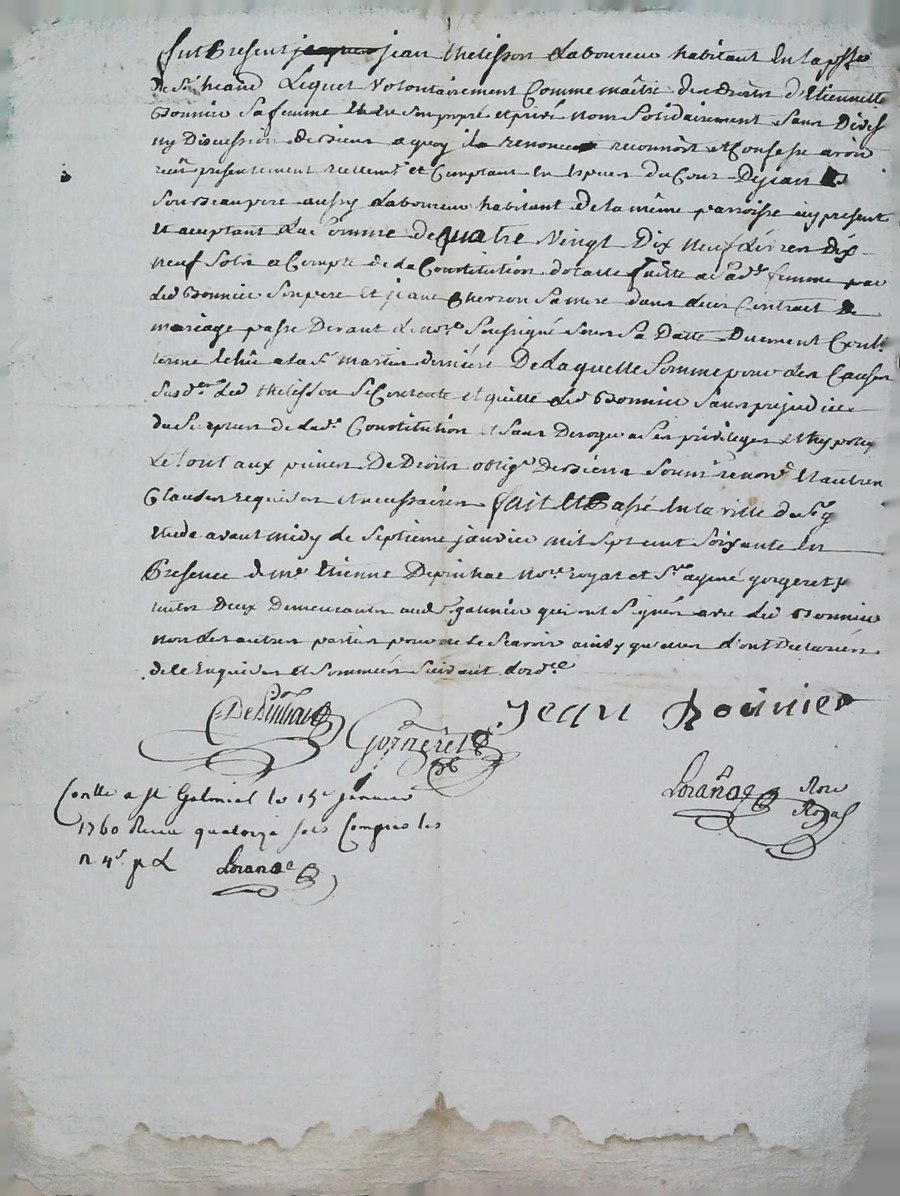 fut Present jean thelisson Laboureur habitant en la psse
de St heand Lequel Volontairement Comme maitre des droits d'Etiennette
Bonnier sa femme et de son propre et privé nom Solidairement Sans Divis
ny Discussion de renonce reconnoit et Confesse avoir
recu presentement reellemt et Comptant en Especes du Cour De jean
Son beaupere aussy Laboureur habitant de la même parroisse icy present
et aceptant La Somme de quatre Vingt Dix neuf Livres dix
neuf Sols a Compte de la Constitution dotalle faitte a Sade femme par
Led Bonnier Sonpere et jeane Sa mere dans leur Contract de
mariage passé Devant Le nore Soussigné Sous Sa Datte Duement Conllé
terme Echû a la St martin derniére De Laquelle Somme pour Les Causes
Susdes Led thelisson Se Contente et quitte Led Bonnier Sans prejudice
du Surplus de Lade Constitution et Sans Deroger a Ses privileges et hypoteq
Le tout aux peines De Droits oblige renone et autres
Clauses requises et necessaires fait et Passé en la ville du St g
avant midy Le Septieme janvier mil Sept cent Soixante En
Presence de me Etienne nore royal et Sr aymé gorgeret
Deux Demeurants aud St galmier qui ont Signés avec Led Bonnier
non Les autres parties pour ne Le Scavoir ainsy qu'elles ont Declarées
de ce Enquises et Sommées Suivant Lordce
Gorgeret Jean Bonnier
Conlle a St Galmier le 15e janvier
1760 Recu quatorze sols Compris les
n 4s p L
Nore
Royal